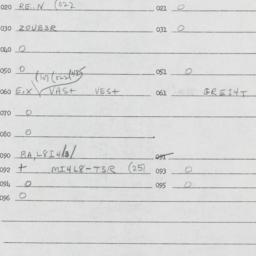 020 RE..N (022 021 0
030 20UE3R 031 0
040 0
050 0 051 0
060 EiX VAS+ VES+ 061 GREI4T
070 0
080 0
090 RA,L8I4/3/ 091
092 + MI4L8-T3R (25) 093 0
094 0 095 0
096 0